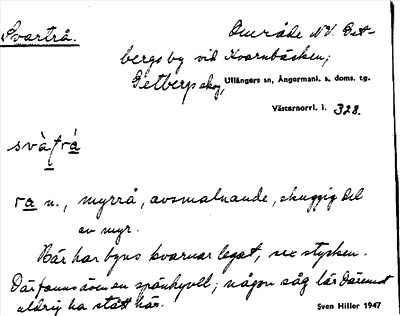 Svartrå.
Område NV. Get-
bergs by vid Kvarnbäcken;
Getbergskog, Ullångers sn, Ångermanl. s. doms. tg.
Västernorrl. l. 328.
svàṭrá
ra n., myrrå, avsmalnande, skuggig del
av myr.
Här har byns kvarnar legat, sex stycken.
Där fanns även en spånhyvel; någon såg lär däremot
aldrig ha stått här.
Sven Hiller 1947